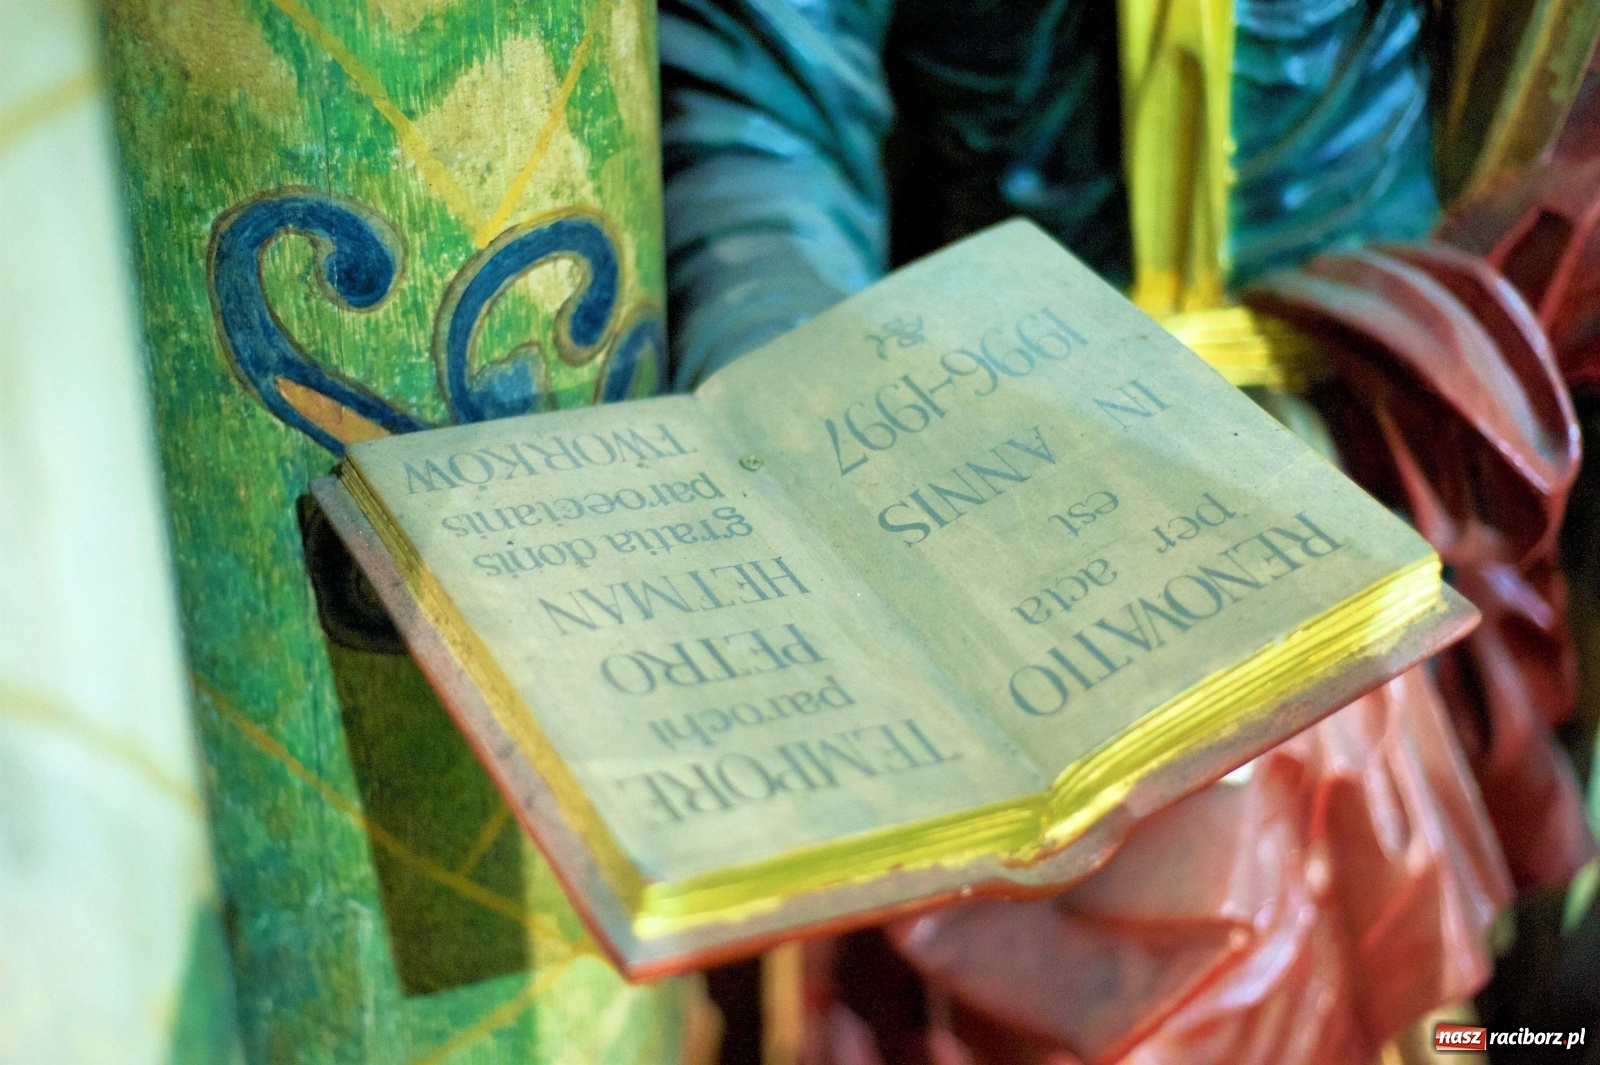 RENOVATIO
per acta
est
IN ANNIS
1996-1997
TEMPORE
parochi
PETRO
HETMAN
gratia donis
paroecianis
TWORKÓW
nasz raciborz.pl